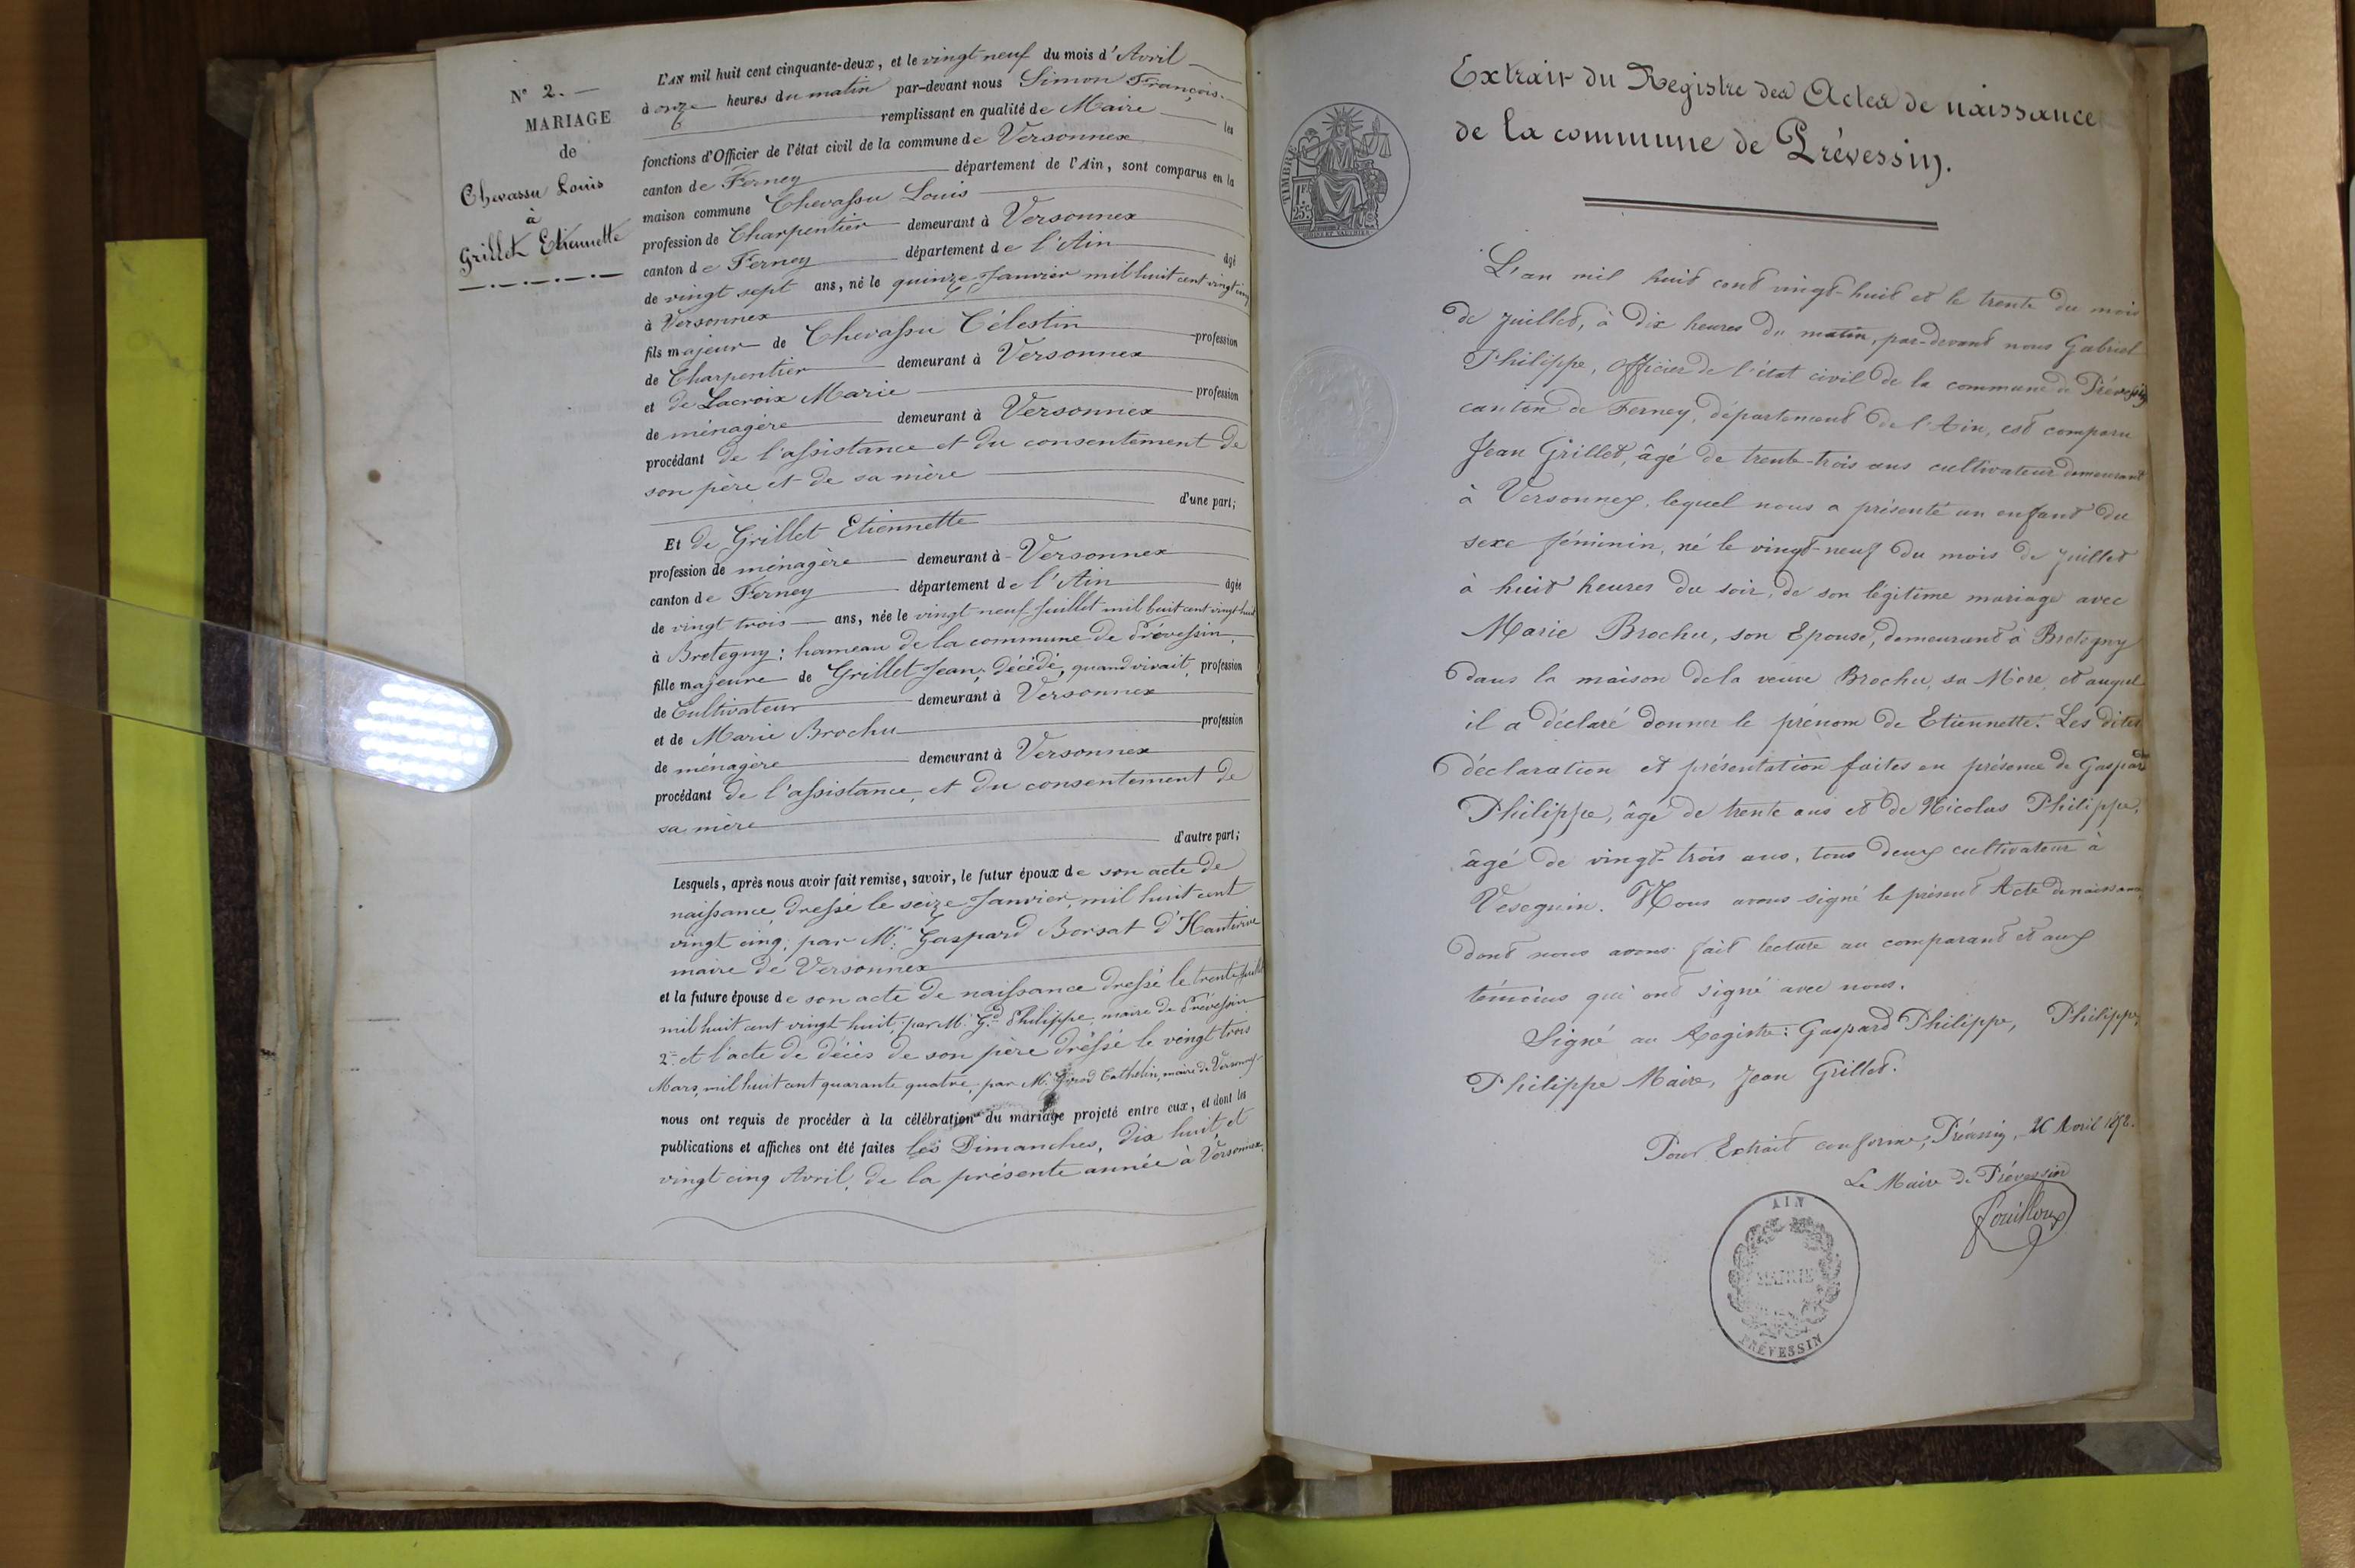 N° 2. —
MARIAGE
de
Chevassu Louis
à
Grillet Etiennette
L'AN mil huit cent cinquante-deux, et le vingt neuf du mois d'Avril
à onze heures du matin par-devant nous Simon François
remplissant en qualité de Maire les
fonctions d'Officier de l'état civil de la commune de Versonnex
canton de Ferney département de l'Ain, sont comparus en la
maison commune Chevassu Louis
profession de Charpentier demeurant à Versonnex
canton de Ferney département de l'Ain âgé
de vingt sept ans, né le quinze Janvier mil huit cent vingt cinq
à Versonnex
fils majeur de Chevassu Célestin profession
de Charpentier demeurant à Versonnex
et de Lacroix Marie profession
de ménagère demeurant à Versonnex
procédant de l'assistance et du consentement de
son père et de sa mère
d'une part;
Et de Grillet Etiennette
profession de ménagère demeurant à Versonnex
canton de Ferney département de l'Ain âgée
de vingt trois ans, née le vingt neuf Juillet mil huit cent vingt huit
à Bretegny: hameau de la commune de Prévessin,
fille majeure de Grillet Jean, décédé, quand vivait, profession
de Cultivateur demeurant à Versonnex
et de Marie Brochu profession
de ménagère demeurant à Versonnex
procédant de l'assistance, et du consentement de
sa mère
d'autre part;
Lesquels, après nous avoir fait remise, savoir, le futur époux de son acte de
naissance, dressé le seize Janvier, mil huit cent
vingt cinq, par Mr. Gaspard Borsat d'Hauterive
maire de Versonnex
et la future épouse de son acte de naissance dressé le trente Juillet
mil huit cent vingt huit, par Mr. Gd. Philippe, maire de Prévessin
2° et l'acte de décès de son père dressé le vingt trois
Mars, mil huit cent quarante quatre, par Mr. Girod Cathelin, maire de Versonnex
nous ont requis de procéder à la célébration du mariage projeté entre eux, et dont les
publications et affiches ont été faites les Dimanches, dix huit, et
vingt cinq Avril, de la présente année à Versonnex,
Extrait du Registre des Actes de naissance
de la commune de Prévessin.
TIMBRE
1F.
25c.
L'an mil huit cent vingt-huit et le trente du mois
de juillet, à dix heures du matin, par-devant nous Gabriel
Philippe, officier de l'état civil de la commune de Prévessin
canton de Ferney, département de l'Ain, est comparu
Jean Grillet, âgé de trente-trois ans cultivateur demeurant
à Versonnex, lequel nous a présenté un enfant du
sexe féminin, né le vingt-neuf du mois de juillet
à huit heures du soir, de son légitime mariage avec
Marie Brochu, son Epouse, demeurant à Bretegny
dans la maison de la veuve Brochu, sa Mère, et auquel
il a déclaré donner le prénom de Etiennette. Les dites
déclaration et présentation faites en présence de Gaspard
Philippe, âgé de trente ans et de Nicolas Philippe,
âgé de vingt-trois ans, tous deux cultivateur à
Vesegnin. Nous avons signé le présent Acte de naissance
dont nous avons fait lecture au comparant et aux
témoins qui ont signé avec nous.
Signé au Registre: Gaspard Philippe, Philippe,
Philippe Maire, Jean Grillet.
Pour Extrait conforme, Prévessin, 26 Avril 1852.
Le Maire de Prévessin
Fouilloux
AIN
MAIRIE
PRÉVESSIN